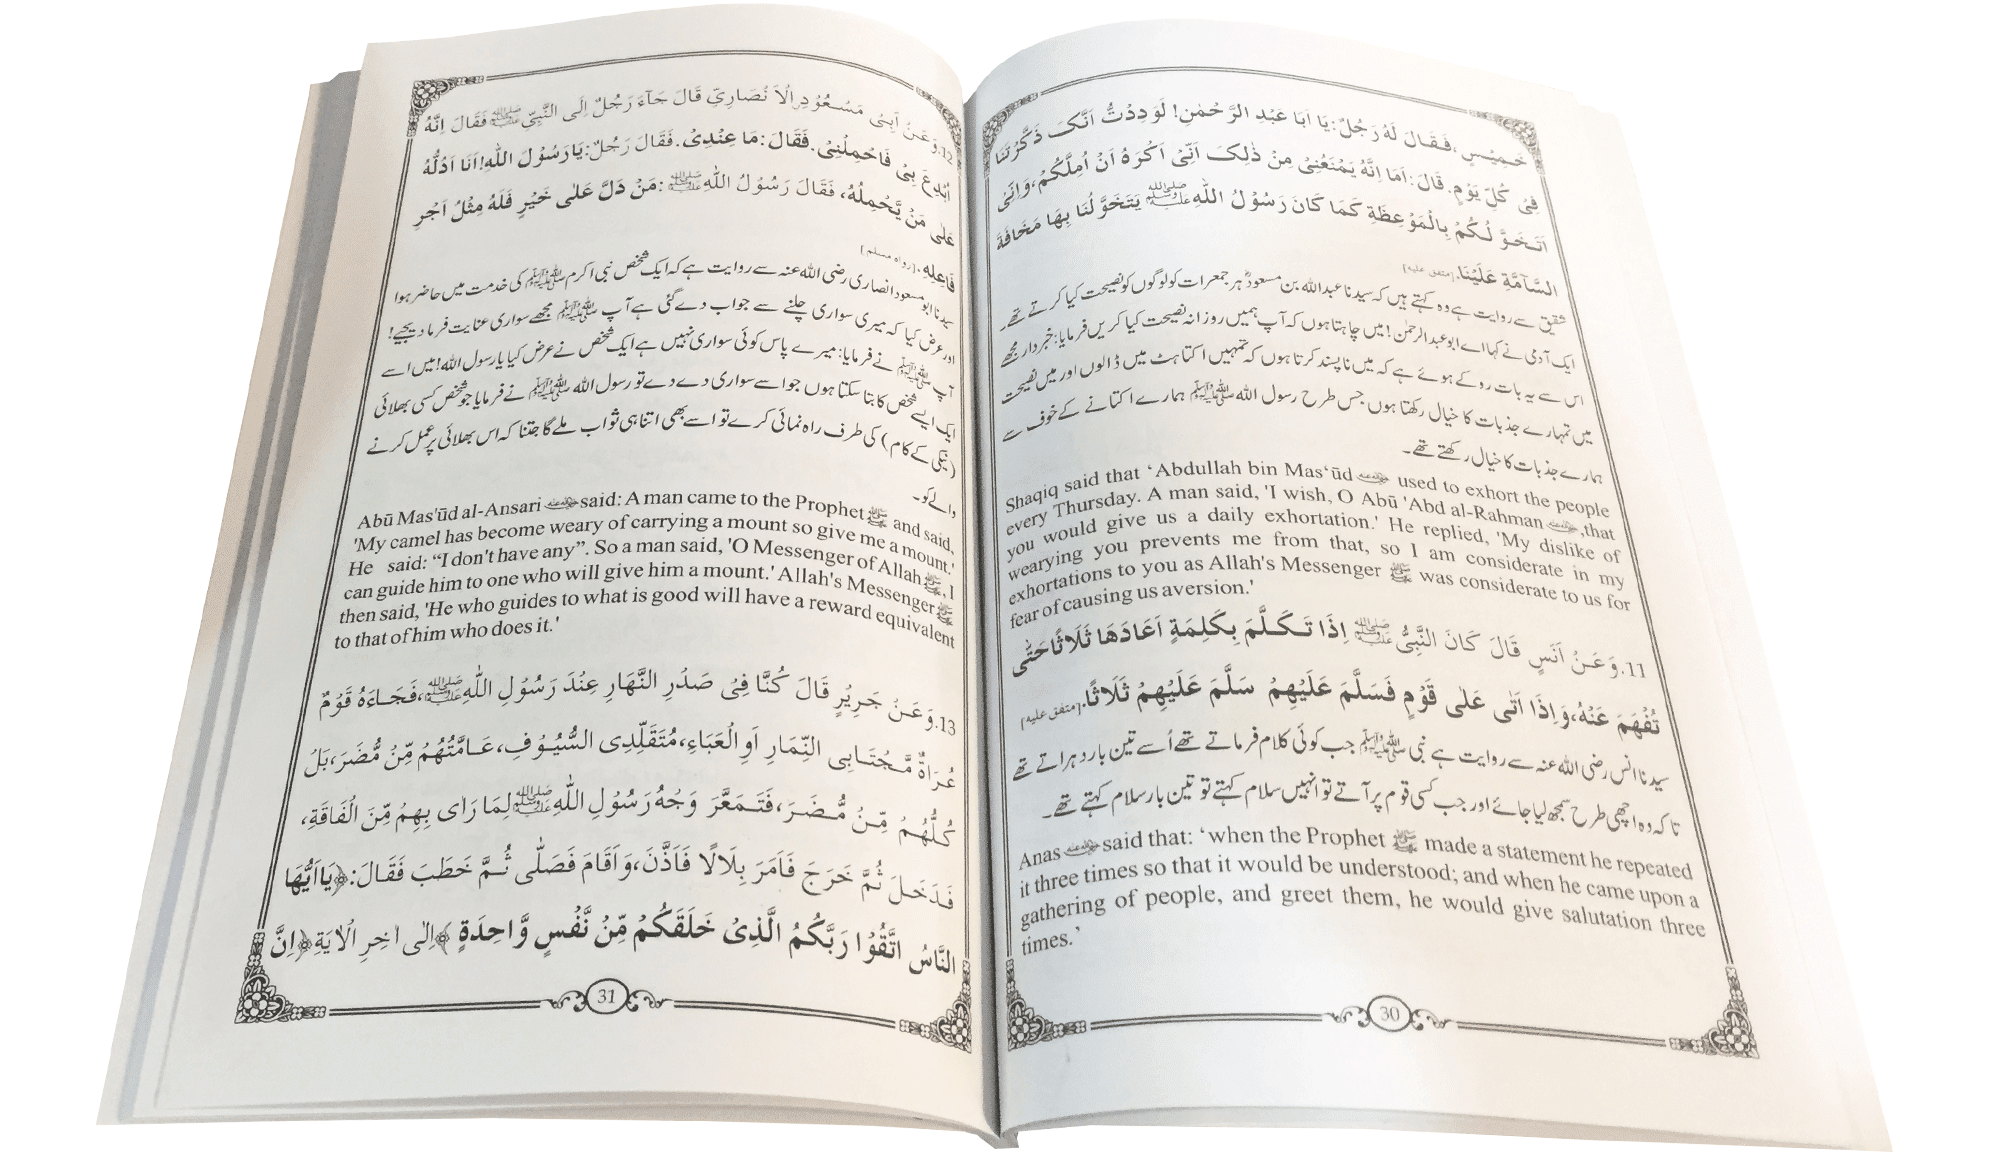 خَمِيْسٍ، فَقَالَ لَهُ رَجُلٌ: يَا اَبَا عَبْدِ الرَّحْمٰنِ! لَوَدِدْتُّ اَنَّکَ ذَكَّرْتَنَا
فِیْ كُلِّ يَوْمٍ. قَالَ: اَمَا اِنَّهُ يَمْنَعُنِیْ مِنْ ذٰلِکَ اَنِّیْ اَكْرَهُ اَنْ اُمِلَّكُمْ، وَاِنِّیْ
اَتَخَوَّلُكُمْ بِالْمَوْعِظَةِ كَمَا كَانَ رَسُوْلُ اللّٰهِ ﷺ يَتَخَوَّلُنَا بِهَا مَخَافَةَ
السَّآمَّةِ عَلَيْنَا. [متفق عليه]
شقیق سے روایت ہے وہ کہتے ہیں کہ سیدنا عبداللہ بن مسعودؓ ہر جمعرات کو لوگوں کو نصیحت کیا کرتے تھے۔
ایک آدمی نے کہا اے ابو عبدالرحمٰن! میں چاہتا ہوں کہ آپ ہمیں روزانہ نصیحت کیا کریں فرمایا: خبردار مجھے
اس سے یہ بات روکے ہوئے ہے کہ میں ناپسند کرتا ہوں کہ تمہیں اکتاہٹ میں ڈالوں اور میں نصیحت
میں تمہارے جذبات کا خیال رکھتا ہوں جس طرح رسول اللہ ﷺ ہمارے اکتانے کے خوف سے
ہمارے جذبات کا خیال رکھتے تھے۔
Shaqiq said that ‘Abdullah bin Mas‘ūd used to exhort the people
every Thursday. A man said, 'I wish, O Abū 'Abd al-Rahman ,that
you would give us a daily exhortation.' He replied, 'My dislike of
wearying you prevents me from that, so I am considerate in my
exhortations to you as Allah's Messenger ﷺ was considerate to us for
fear of causing us aversion.'
11. وَعَنْ اَنَسٍ قَالَ كَانَ النَّبِیُّ ﷺ اِذَا تَكَلَّمَ بِكَلِمَةٍ اَعَادَهَا ثَلَاثًا حَتّٰى
تُفْهَمَ عَنْهُ، وَاِذَا اَتٰى عَلٰى قَوْمٍ فَسَلَّمَ عَلَيْهِمْ سَلَّمَ عَلَيْهِمْ ثَلَاثًا. [متفق عليه]
سیدنا انس رضی اللہ عنہ سے روایت ہے نبی ﷺ جب کوئی کلام فرماتے تھے اُسے تین بار دہراتے تھے
تاکہ وہ اچھی طرح سمجھ لیا جائے اور جب کسی قوم پر آتے تو انہیں سلام کہتے تو تین بار سلام کہتے تھے۔
Anas said that: ‘when the Prophet ﷺ made a statement he repeated
it three times so that it would be understood; and when he came upon a
gathering of people, and greet them, he would give salutation three
times.’
30
12. وَعَنْ اَبِیْ مَسْعُوْدِ الْاَنْصَارِیِّ قَالَ جَآءَ رَجُلٌ اِلَى النَّبِیِّ ﷺ فَقَالَ اِنَّهُ
اُبْدِعَ بِیْ فَاحْمِلْنِیْ. فَقَالَ: مَا عِنْدِیْ. فَقَالَ رَجُلٌ: يَا رَسُوْلَ اللّٰهِ! اَنَا اَدُلُّهُ
عَلٰى مَنْ يَّحْمِلُهُ، فَقَالَ رَسُوْلُ اللّٰهِ ﷺ: مَنْ دَلَّ عَلٰى خَيْرٍ فَلَهُ مِثْلُ اَجْرِ
فَاعِلِهِ. [رواه مسلم]
سیدنا ابو مسعود انصاری رضی اللہ عنہ سے روایت ہے کہ ایک شخص نبی اکرم ﷺ کی خدمت میں حاضر ہوا
اور عرض کیا کہ میری سواری چلنے سے جواب دے گئی ہے آپ ﷺ مجھے سواری عنایت فرما دیجیے!
آپ ﷺ نے فرمایا: میرے پاس کوئی سواری نہیں ہے ایک شخص نے عرض کیا یا رسول اللہ! میں اسے
ایک ایسے شخص کا بتا سکتا ہوں جو اسے سواری دے دے تو رسول اللہ ﷺ نے فرمایا جو شخص کسی بھلائی
(نیکی کے کام) کی طرف راہ نمائی کرے تو اسے بھی اتنا ہی ثواب ملے گا جتنا کہ اس بھلائی پر عمل کرنے
والے کو۔
Abū Mas'ūd al-Ansari said: A man came to the Prophet ﷺ and said,
'My camel has become weary of carrying a mount so give me a mount.'
He said: “I don't have any”. So a man said, 'O Messenger of Allah ﷺ, I
can guide him to one who will give him a mount.' Allah's Messenger ﷺ
then said, 'He who guides to what is good will have a reward equivalent
to that of him who does it.'
13. وَعَنْ جَرِيْرٍ قَالَ كُنَّا فِیْ صَدْرِ النَّهَارِ عِنْدَ رَسُوْلِ اللّٰهِ ﷺ، فَجَاءَهُ قَوْمٌ
عُرَاةٌ مُّجْتَابِی النِّمَارِ اَوِ الْعَبَاءِ، مُتَقَلِّدِی السُّيُوْفِ، عَامَّتُهُمْ مِّنْ مُّضَرَ، بَلْ
كُلُّهُمْ مِّنْ مُّضَرَ، فَتَمَعَّرَ وَجْهُ رَسُوْلِ اللّٰهِ ﷺ لِمَا رَاٰى بِهِمْ مِّنَ الْفَاقَةِ،
فَدَخَلَ ثُمَّ خَرَجَ فَاَمَرَ بِلَالًا فَاَذَّنَ، وَاَقَامَ فَصَلّٰى ثُمَّ خَطَبَ فَقَالَ: ﴿يَا اَيُّهَا
النَّاسُ اتَّقُوْا رَبَّكُمُ الَّذِیْ خَلَقَكُمْ مِّنْ نَّفْسٍ وَّاحِدَةٍ﴾ اِلٰى اٰخِرِ الْاٰيَةِ ﴿اِنَّ
31